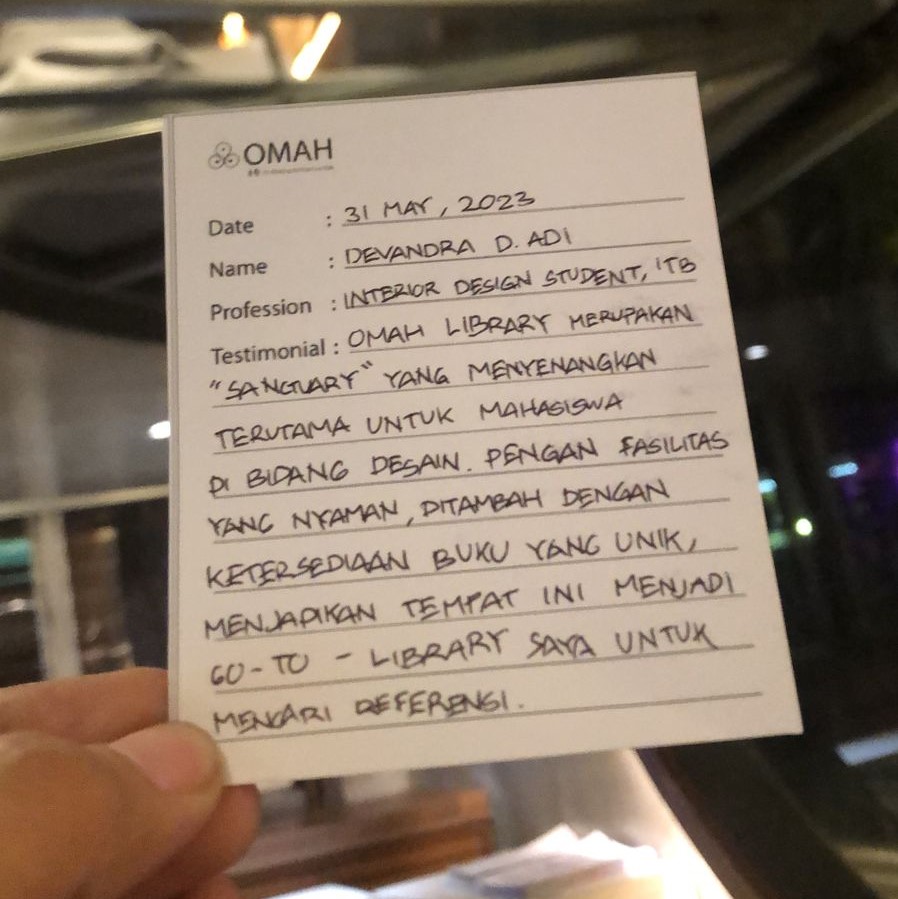 OMAH
Date : 31 MAY, 2023
Name : DEVANDRA D. ADI
Profession : INTERIOR DESIGN STUDENT, ITB
Testimonial : OMAH LIBRARY MERUPAKAN
"SANCTUARY" YANG MENYENANGKAN
TERUTAMA UNTUK MAHASISWA
DI BIDANG DESAIN. DENGAN FASILITAS
YANG NYAMAN, DITAMBAH DENGAN
KETERSEDIAAN BUKU YANG UNIK,
MENJADIKAN TEMPAT INI MENJADI
GO-TO - LIBRARY SAYA UNTUK
MENCARI REFERENSI.